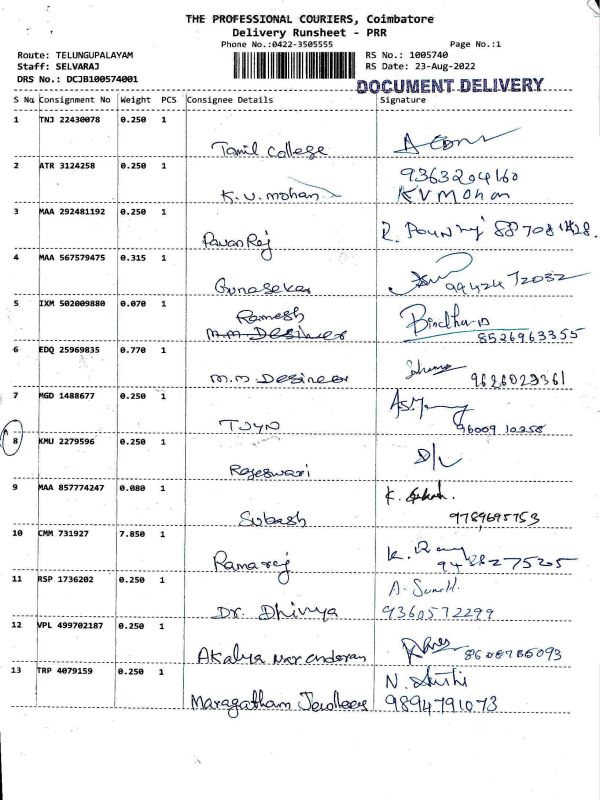 THE PROFESSIONAL COURIERS, Coimbatore
Delivery Runsheet - PRR
Phone No.:0422-3505555 Page No.:1
Route: TELUNGUPALAYAM RS No.: 1005740
Staff: SELVARAJ RS Date: 23-Aug-2022
DRS No.: DCJB100574001
DOCUMENT DELIVERY
S No Consignment No Weight PCS Consignee Details Signature
1 TNJ 22430078 0.250 1
Tamil College
2 ATR 3124258 0.250 1 9363204160
K.V.mohan KVMohan
3 MAA 292481192 0.250 1
Pavan Raj
4 MAA 567579475 0.315 1
Gunasekar 9942472032
5 IXM 502009880 0.070 1
Ramesh
8526963355
6 EDQ 25969835 0.770 1
9626029361
7 MGD 1488677 0.250 1
96009 10258
8 KMU 2279596 0.250 1 D/L
Rajeswari
9 MAA 857774247 0.080 1
Subash 9789695753
10 CMM 731927 7.850 1
Ramaraj
11 RSP 1736202 0.250 1
Dr. Dhivya 9360572299
12 VPL 499702187 0.250 1
Akalya
13 TRP 4079159 0.250 1
Maragatham 9894791073